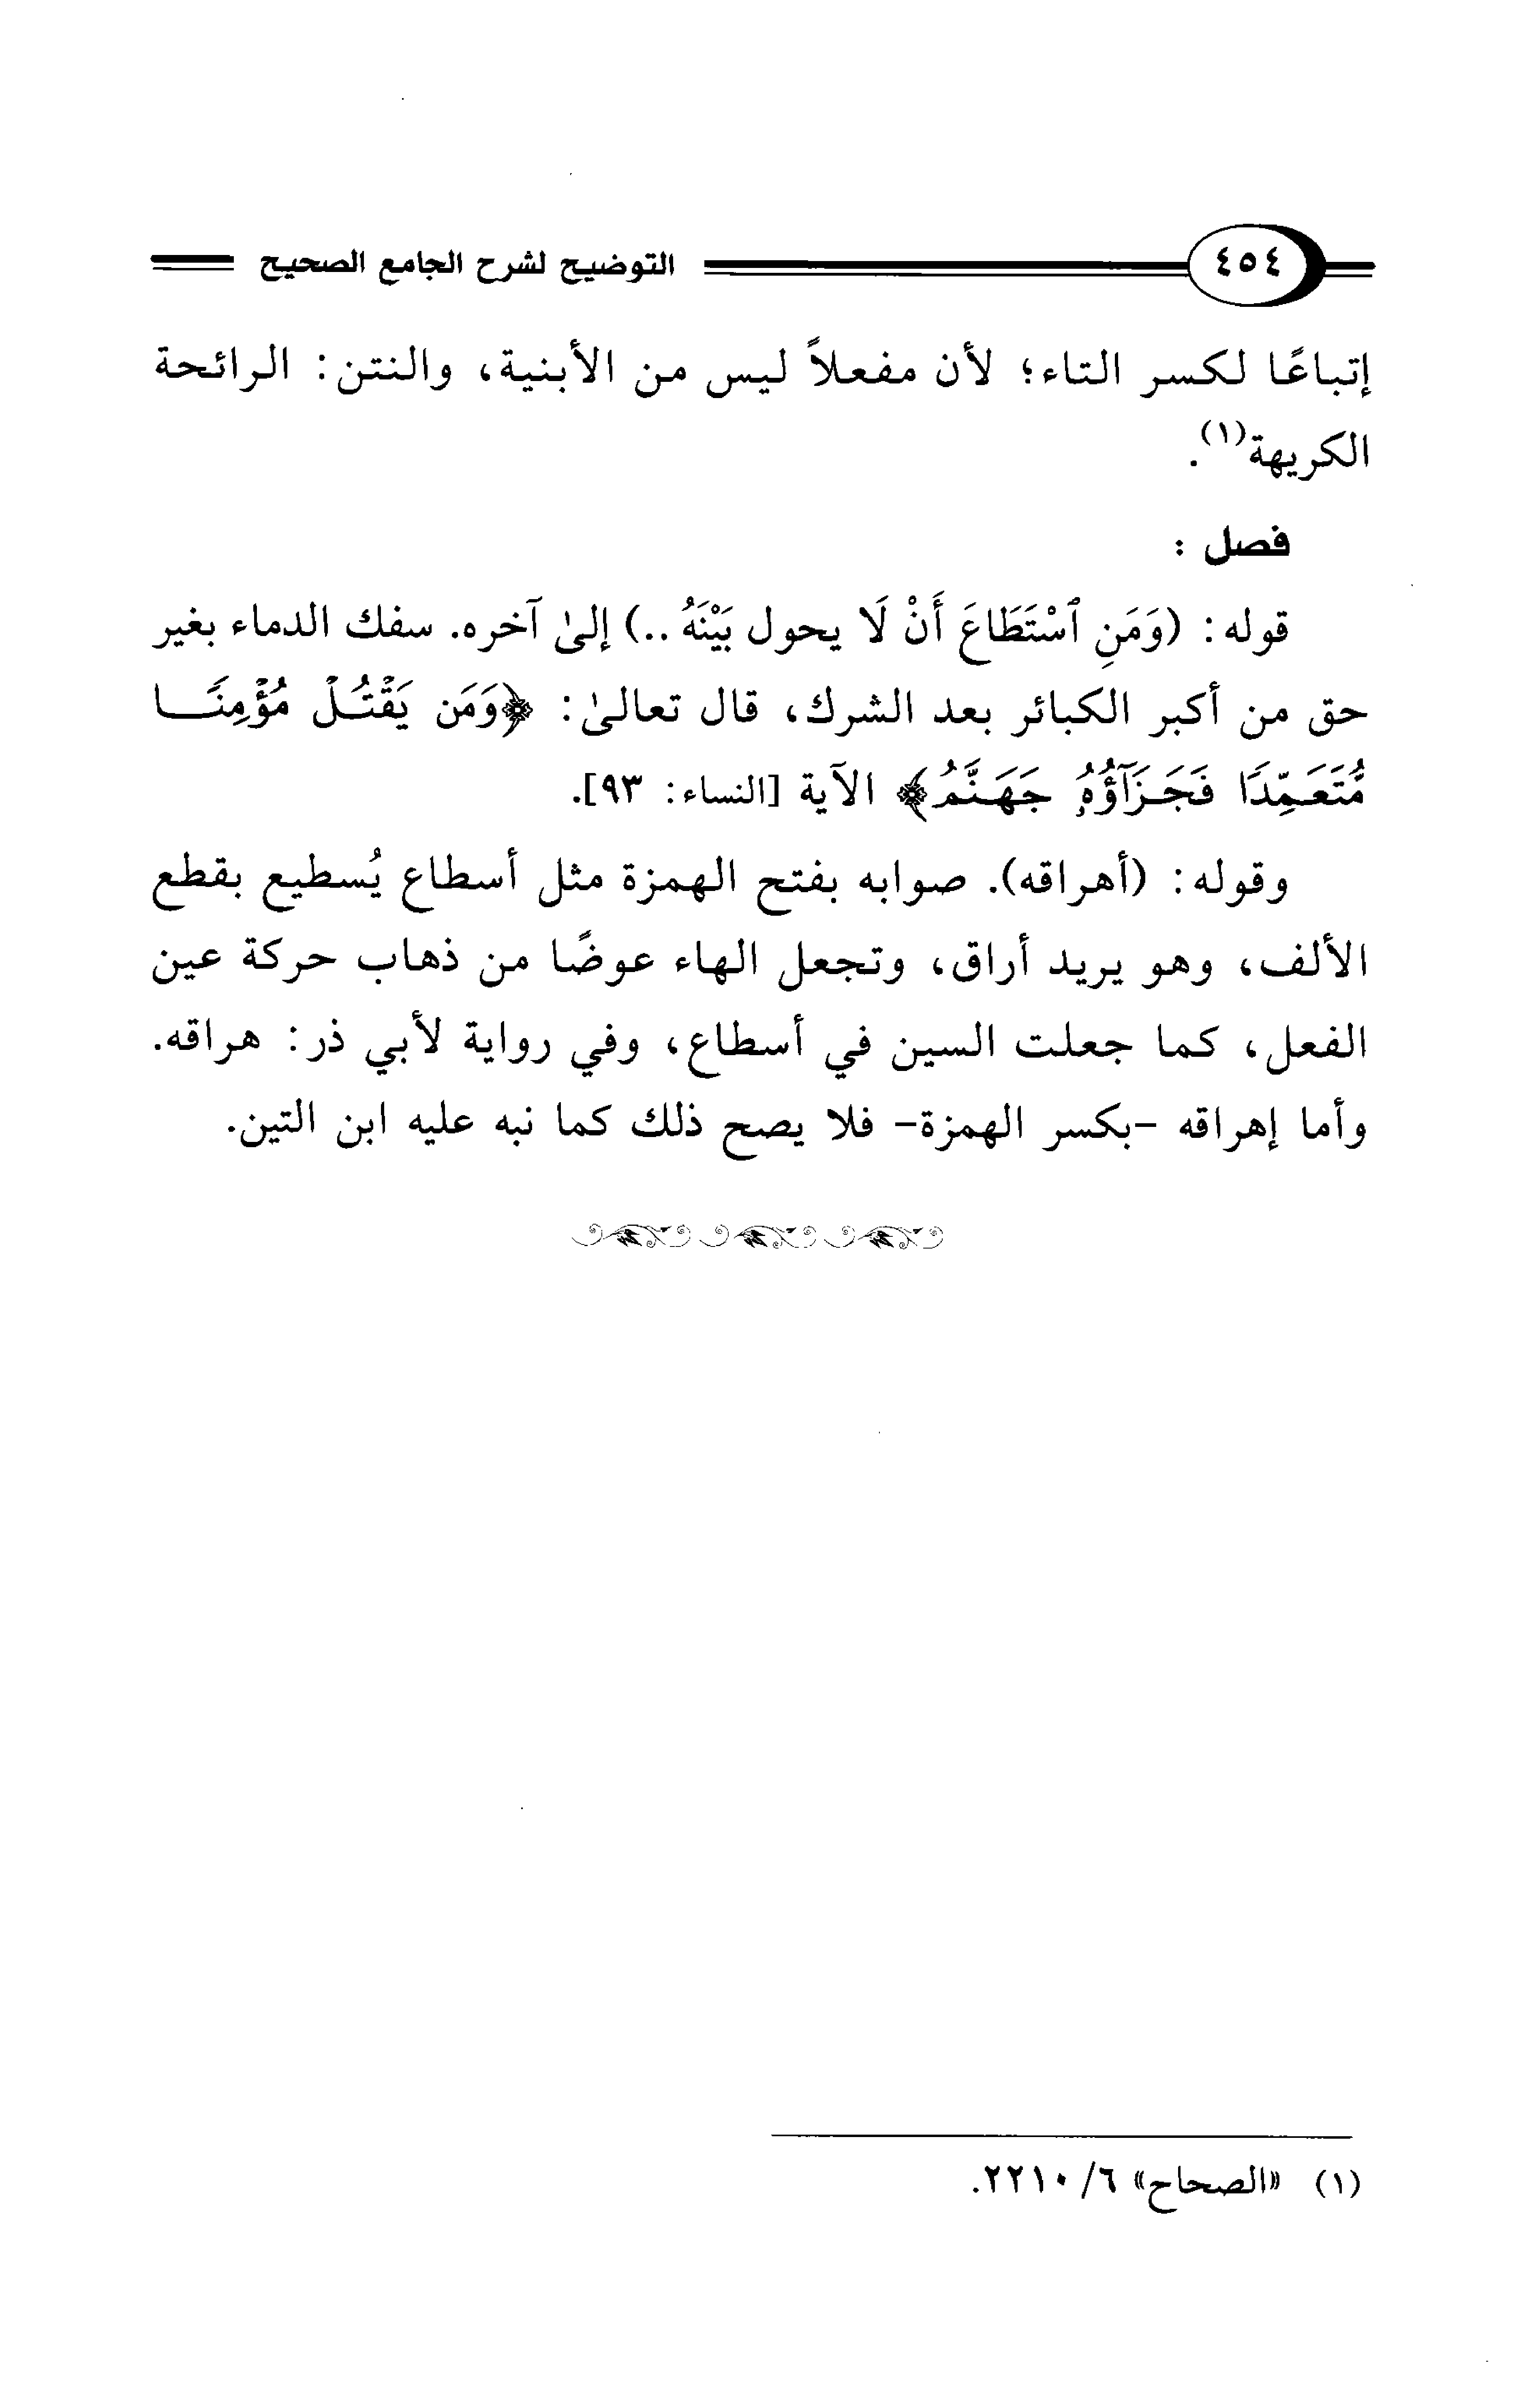 ٤٥٤ التوضيح لشرح الجامع الصحيح
إتباعًا لكسر التاء؛ لأن مفعلاً ليس من الأبنية، والنتن: الرائحة
الكريهة(١).
فصل :
قوله: (وَمَنِ ٱسْتَطَاعَ أَنْ لَا يحول بَيْنَهُ ..) إلىٰ آخره. سفك الدماء بغير
حق من أكبر الكبائر بعد الشرك، قال تعالىٰ: ﴿وَمَن يَقْتُلْ مُؤْمِنًا
مُّتَعَمِّدًا فَجَزَآؤُهُۥ جَهَنَّمُ﴾ الآية [النساء: ٩٣].
وقوله: (أهراقه). صوابه بفتح الهمزة مثل أسطاع يُسطيع بقطع
الألف، وهو يريد أراق، وتجعل الهاء عوضًا من ذهاب حركة عين
الفعل، كما جعلت السين في أسطاع، وفي رواية لأبي ذر: هراقه.
وأما إهراقه -بكسر الهمزة- فلا يصح ذلك كما نبه عليه ابن التين.
(١) «الصحاح» ٦/ ٢٢١٠.